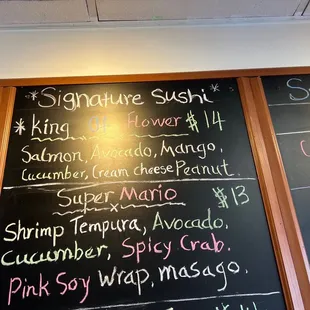 *Signature Sushi*
*king of Flower $14
Salmon, Avocado, Mango,
Cucumber, Cream cheese Peanut.
Super Mario $13
Shrimp Tempura, Avocado,
Cucumber, Spicy Crab.
Pink Soy Wrap, masago.
S